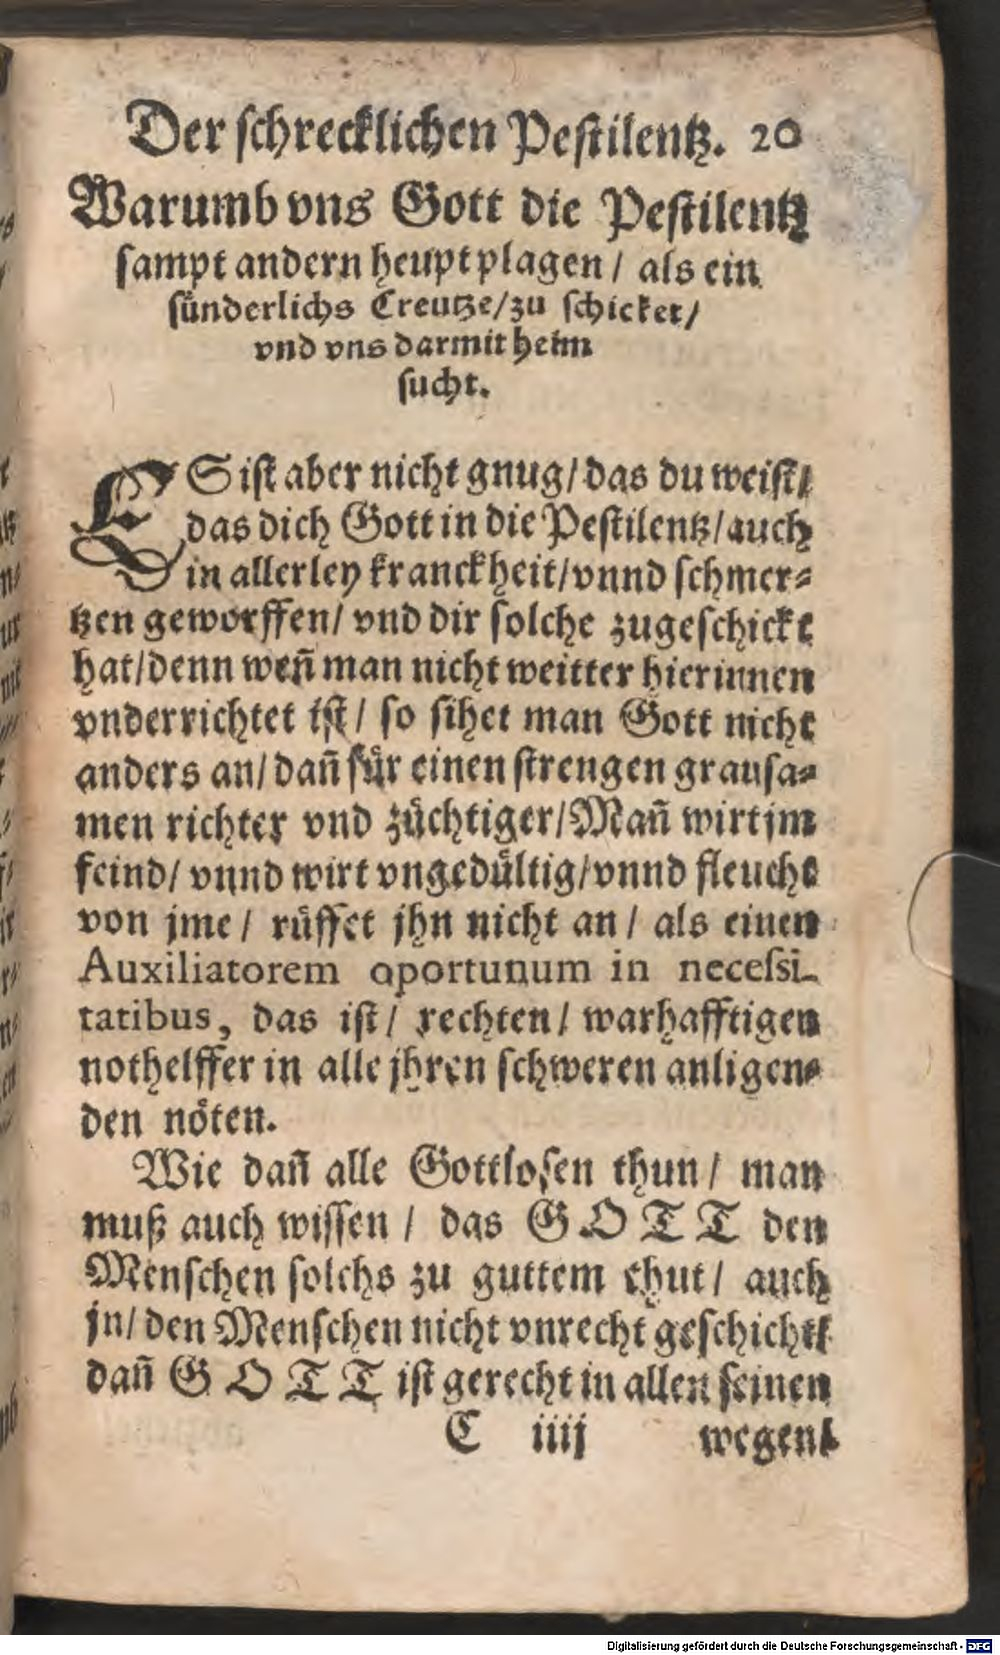 Der ſchrecklichen Peſtilentz. 20
Warumb vns Gott die Peſtilentz
ſampt andern heuptplagen / als ein
ſünderlichs Creutze/zu ſchicket/
vnd vns darmit heim
ſucht.
ES iſt aber nicht gnug/das du weiſt/
das dich Gott in die Peſtilentz/auch
in allerley kranckheit/vnnd ſchmer⸗
tzen geworffen/ vnd dir ſolche zugeſchickt
hat/denn weñ man nicht weitter hierinnen
vnderrichtet iſt / ſo ſihet man Gott nicht
anders an/dañ für einen ſtrengen grauſa⸗
men richter vnd züchtiger/Mañ wirt jm
feind/ vnnd wirt vngedültig/vnnd fleucht
von jme / rüffet jhn nicht an / als einen
Auxiliatorem oportunum in neceſsi-
tatibus, das iſt/ rechten/ warhafftigen
nothelffer in alle jhren ſchweren anligen⸗
den nöten.
Wie dañ alle Gottloſen thun / man
muß auch wiſſen / das GOTT den
Menſchen ſolchs zu guttem thut/ auch
jn/den Menſchen nicht vnrecht geſchicht/
dañ GOTT iſt gerecht in allen ſeinen
C iiij wegen/
Digitalisierung gefördert durch die Deutsche Forschungsgemeinschaft - DFG